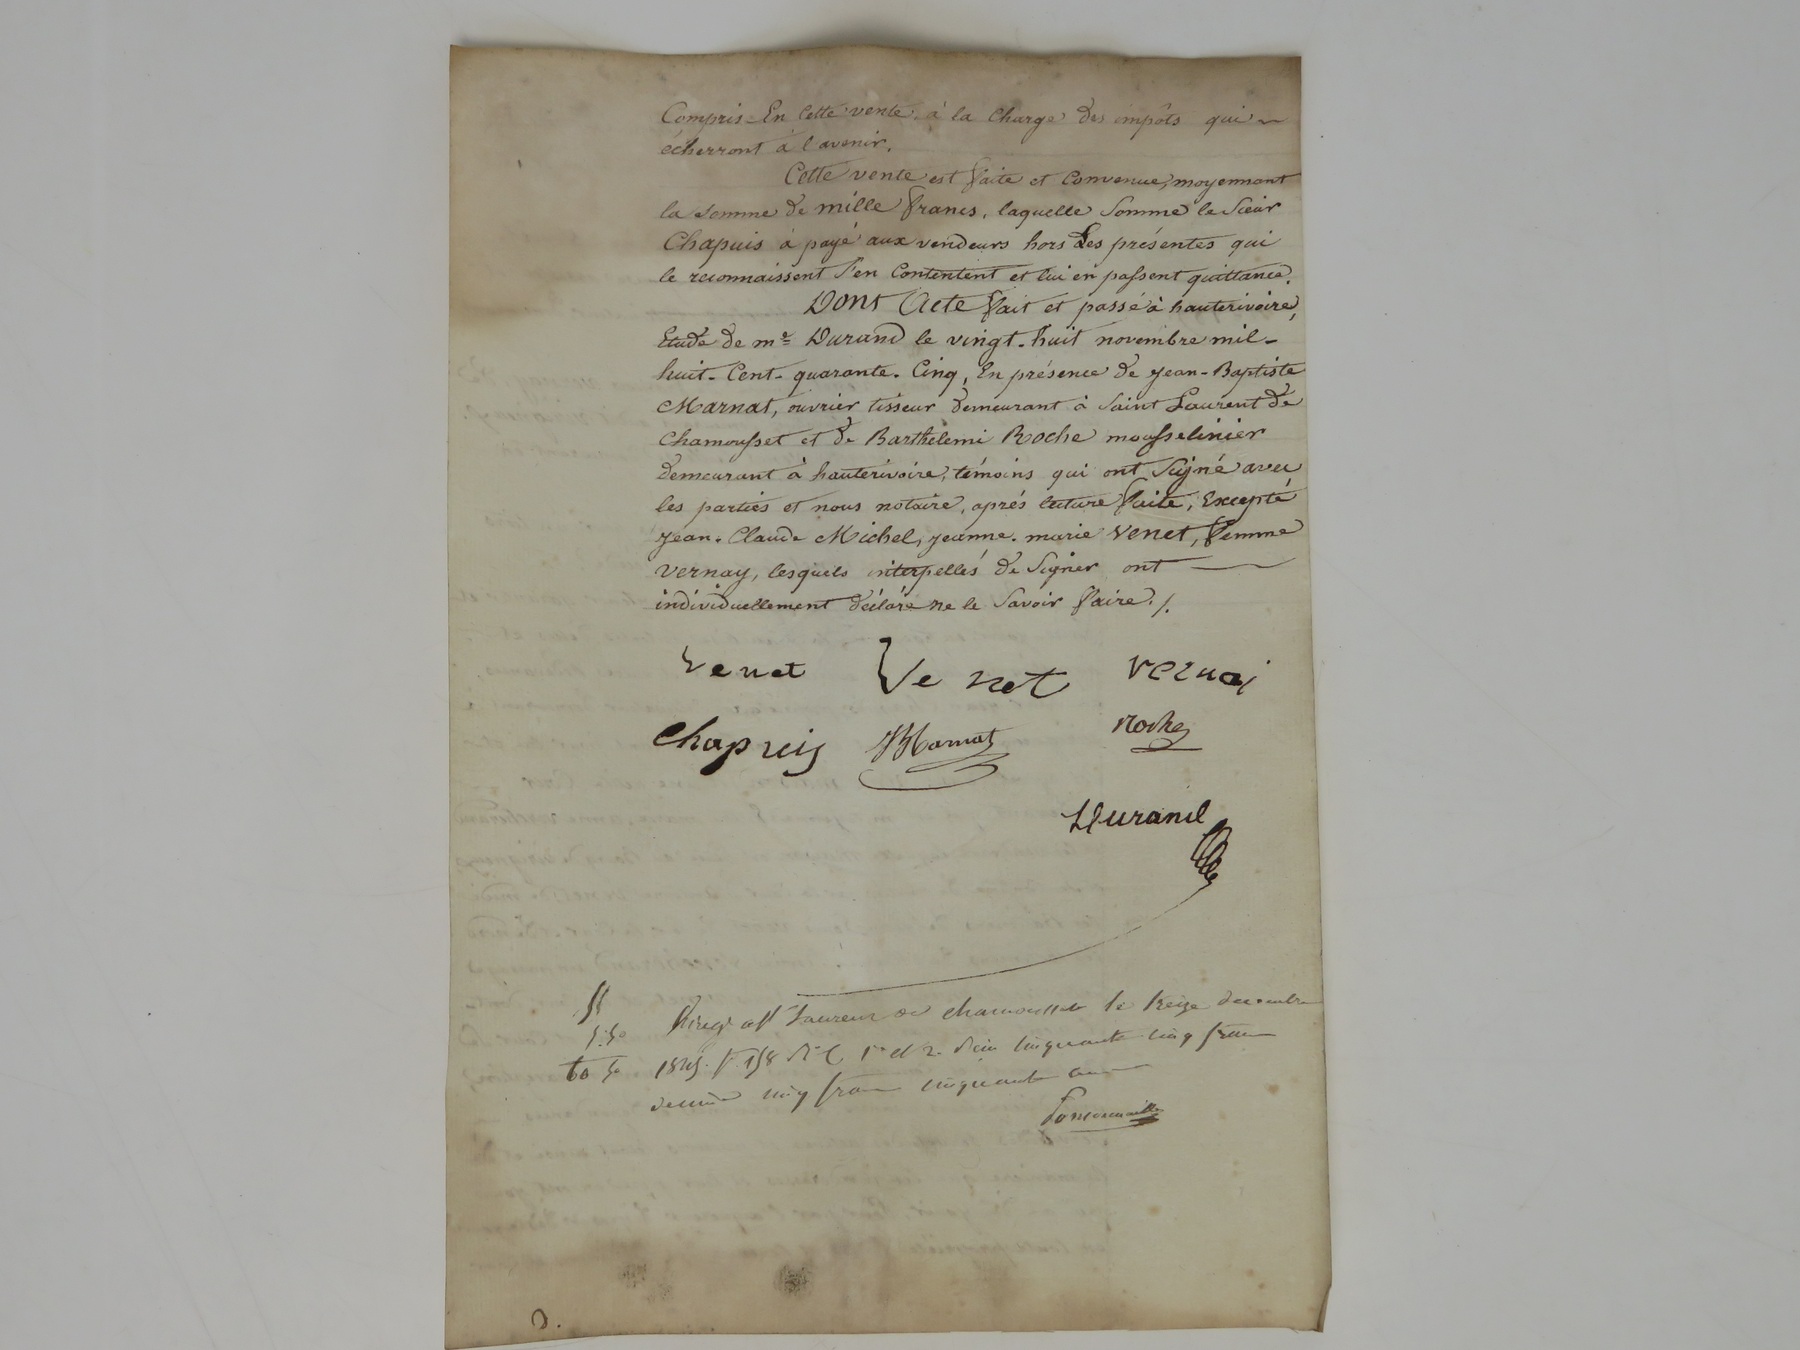 Compris En Cette vente à la Charge des impôts qui
écherront à l'avenir.
Cette vente est faite et Convenue, moyennant
la somme de mille francs, laquelle Somme le Sieur
Chapuis à payé aux vendeurs hors Les présentes qui
le reconnaissent S'en Contentent et lui en passent quittance.
DONT Acte fait et passé à hauterivoire,
Etude de me Durand le vingt-huit novembre mil-
huit-Cent-quarante-Cinq, En présence de jean-Baptiste
Marnat, ouvrier tisseur demeurant à Saint Laurent de
Chamousset et de Barthelemi Roche mousselinier
demeurant à hauterivoire, témoins qui ont Signé avec
les parties et nous notaire, aprés lecture faite, Excepté
jean-Claude Michel, jeanne-marie Venet, femme
vernay, lesquels interpellés de Signer ont
individuellement déclaré ne le Savoir faire ./.
venet Venet vernai
Chapuis JBMarnat roche
Durand
55
5.50
60 50
Laurent de chamousset le treize decembre
1845. f. 158 1er et 2. cinquante cinq francs
decime cinq francs cinquante
D.